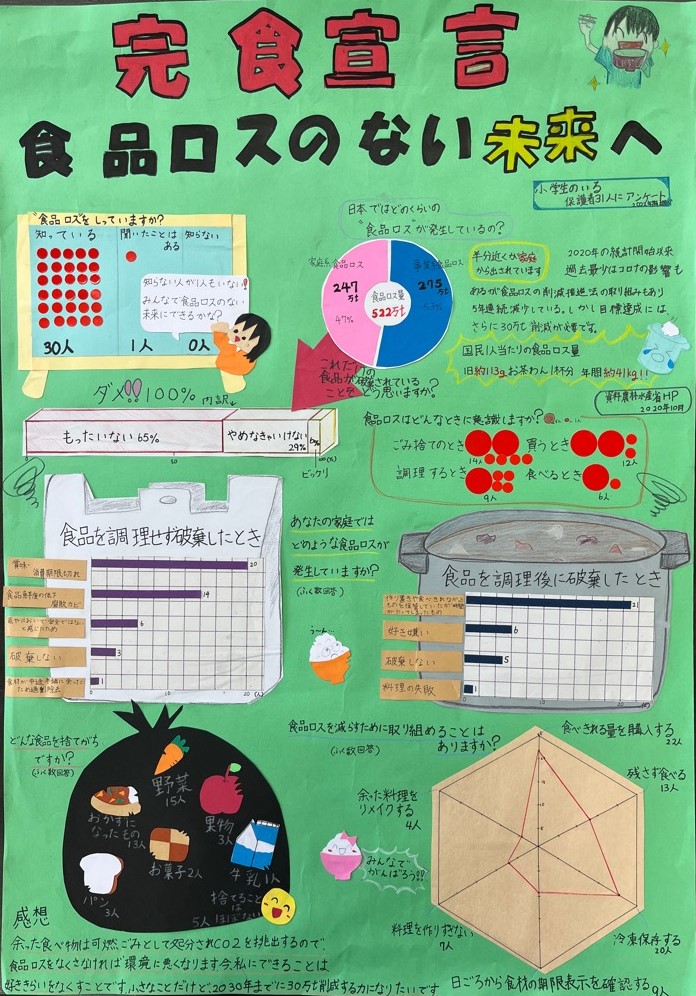 完食宣言
食品ロスのない未来へ
小学生のいる
保護者31人にアンケート
"食品ロスをしっていますか?
知っている
聞いたことは
ある
知らない
30人
1人
0人
知らない人が1人もいない!
みんなで食品ロスのない
未来にできるかな?
日本ではどのくらいの
"食品ロスが発生しているの?
家庭系食品ロス
247
万t
47%
事業系食品ロス
275
万t
53%
食品ロス量
522万t
半分近くが家庭
から出されています
2020年の統計開始以来
過去最少はコロナの影響も
あるが食品ロスの削減推進法の取り組みもあり
5年連続減少している。しかし目標達成には
さらに30万t削減が必要です。
国民1人当たりの食品ロス量
1日約113gお茶わん1杯分 年間約41kg!!
資料農林水産省HP
2020年10月
これだけの
食品が破棄されている
ことをどう思いますか?
ダメ!!100%
内訳
もったいない65%
やめなきゃいけない
29%
6%
0
50
100(%)
ビックリ
食品ロスはどんなときに意識しますか?
ごみ捨てのとき
14人
買うとき
12人
調理するとき
9人
食べるとき
6人
食品を調理せず破棄したとき
賞味・
消費期限切れ
20
食品鮮度の低下
腐敗カビ
14
6
破棄しない
3
1
0
10
20(人)
あなたの家庭では
どのような食品ロスが
発生していますか?
(ふく数回答)
う〜ん…
食品を調理後に破棄したとき
21
好き嫌い
6
破棄しない
5
料理の失敗
1
0
10
20(人)
どんな食品を捨てがち
ですか?
(ふく数回答)
野菜
15人
おかずに
なったもの
13人
果物
3人
お菓子2人
牛乳1人
パン
3人
捨てることは
ほぼない
5人
食品ロスを減らすために取り組めることは
ありますか?
(ふく数回答)
食べきれる量を購入する
22人
残さず食べる
13人
余った料理を
リメイクする
4人
みんなで
がんばろう!!
料理を作りすぎない
7人
冷凍保存する
20人
日ごろから食材の期限表示を確認する9人
感想
余った食べ物は可燃ごみとして処分されCO2を排出するので、
食品ロスをなくさなければ環境に悪くなります今、私にできることは
好ききらいをなくすことです。小さなことだけど、2030年までに30万t削減する力になりたいです